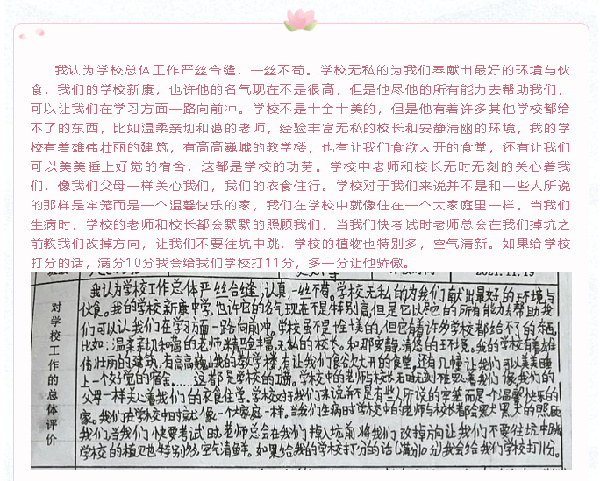 我认为学校总体工作严丝合缝,一丝不苟。学校无私的为我们奉献出最好的环境与伙
食,我们的学校新康,也许他的名气现在不是很高,但是他尽他的所有能力去帮助我们,
可以让我们在学习方面一路向前冲。学校不是十全十美的,但是他有着许多其他学校都给
不了的东西,比如温柔亲切和谐的老师,经验丰富无私的校长和安静清幽的环境,我的学
校有着雄伟壮丽的建筑,有高高巍峨的教学楼,也有让我们食欲大开的食堂,还有让我们
可以美美睡上好觉的宿舍,这都是学校的功劳。学校中老师和校长无时无刻的关心着我
们,像我们父母一样关心我们,我们的衣食住行。学校对于我们来说并不是和一些人所说
的那样是牢笼而是一个温馨快乐的家,我们在学校中就像住在一个大家庭里一样,当我们
生病时,学校的老师和校长都会默默的照顾我们,当我们快考试时老师总会在我们掉坑之
前教我们改掉方向,让我们不要往坑中跳,学校的植物也特别多,空气清新。如果给学校
打分的话,满分10分我会给我们学校打11分,多一分让他骄傲。
对学校工作的总体评价
我认为学校工作总体严丝合缝,认真一丝不苟。学校无私的为我们献出最好的环境与
伙食。我的学校新康中学,也许它的名气现在不是特别高,但是它以它的所有能力去帮助我
们可以让我们在学习方面一路向前冲。学校虽不是十全十美的,但它有着许多学校都给不了的东西,
比如:温柔亲切和谐的老师,经验丰富无私的校长。和那安静,清悠的环境。我的学校有着雄
伟壮丽的建筑,有高高巍峨的教学楼,有让我们食欲大开的食堂。还有让我们可以美美睡
上一个好觉的宿舍……这都是学校的功劳。学校中的老师与校长无时无刻在关心着我们像我们的
父母一样关心着我们的衣食住行。学校对于我们来说并不是有些人所说的牢笼而是一个温馨快乐的
家。我们在学校中时就像一个大家庭一样。当我们生病时学校中的老师与校长都会默默的照顾
我们,当我们快要考试时,老师总会在我们掉入坑前将我们改掉方向让我们不要往坑中跳
学校的植物也特别多,空气清鲜。如果给我的学校打分的话(满分10分)我会给我们学校打11分。